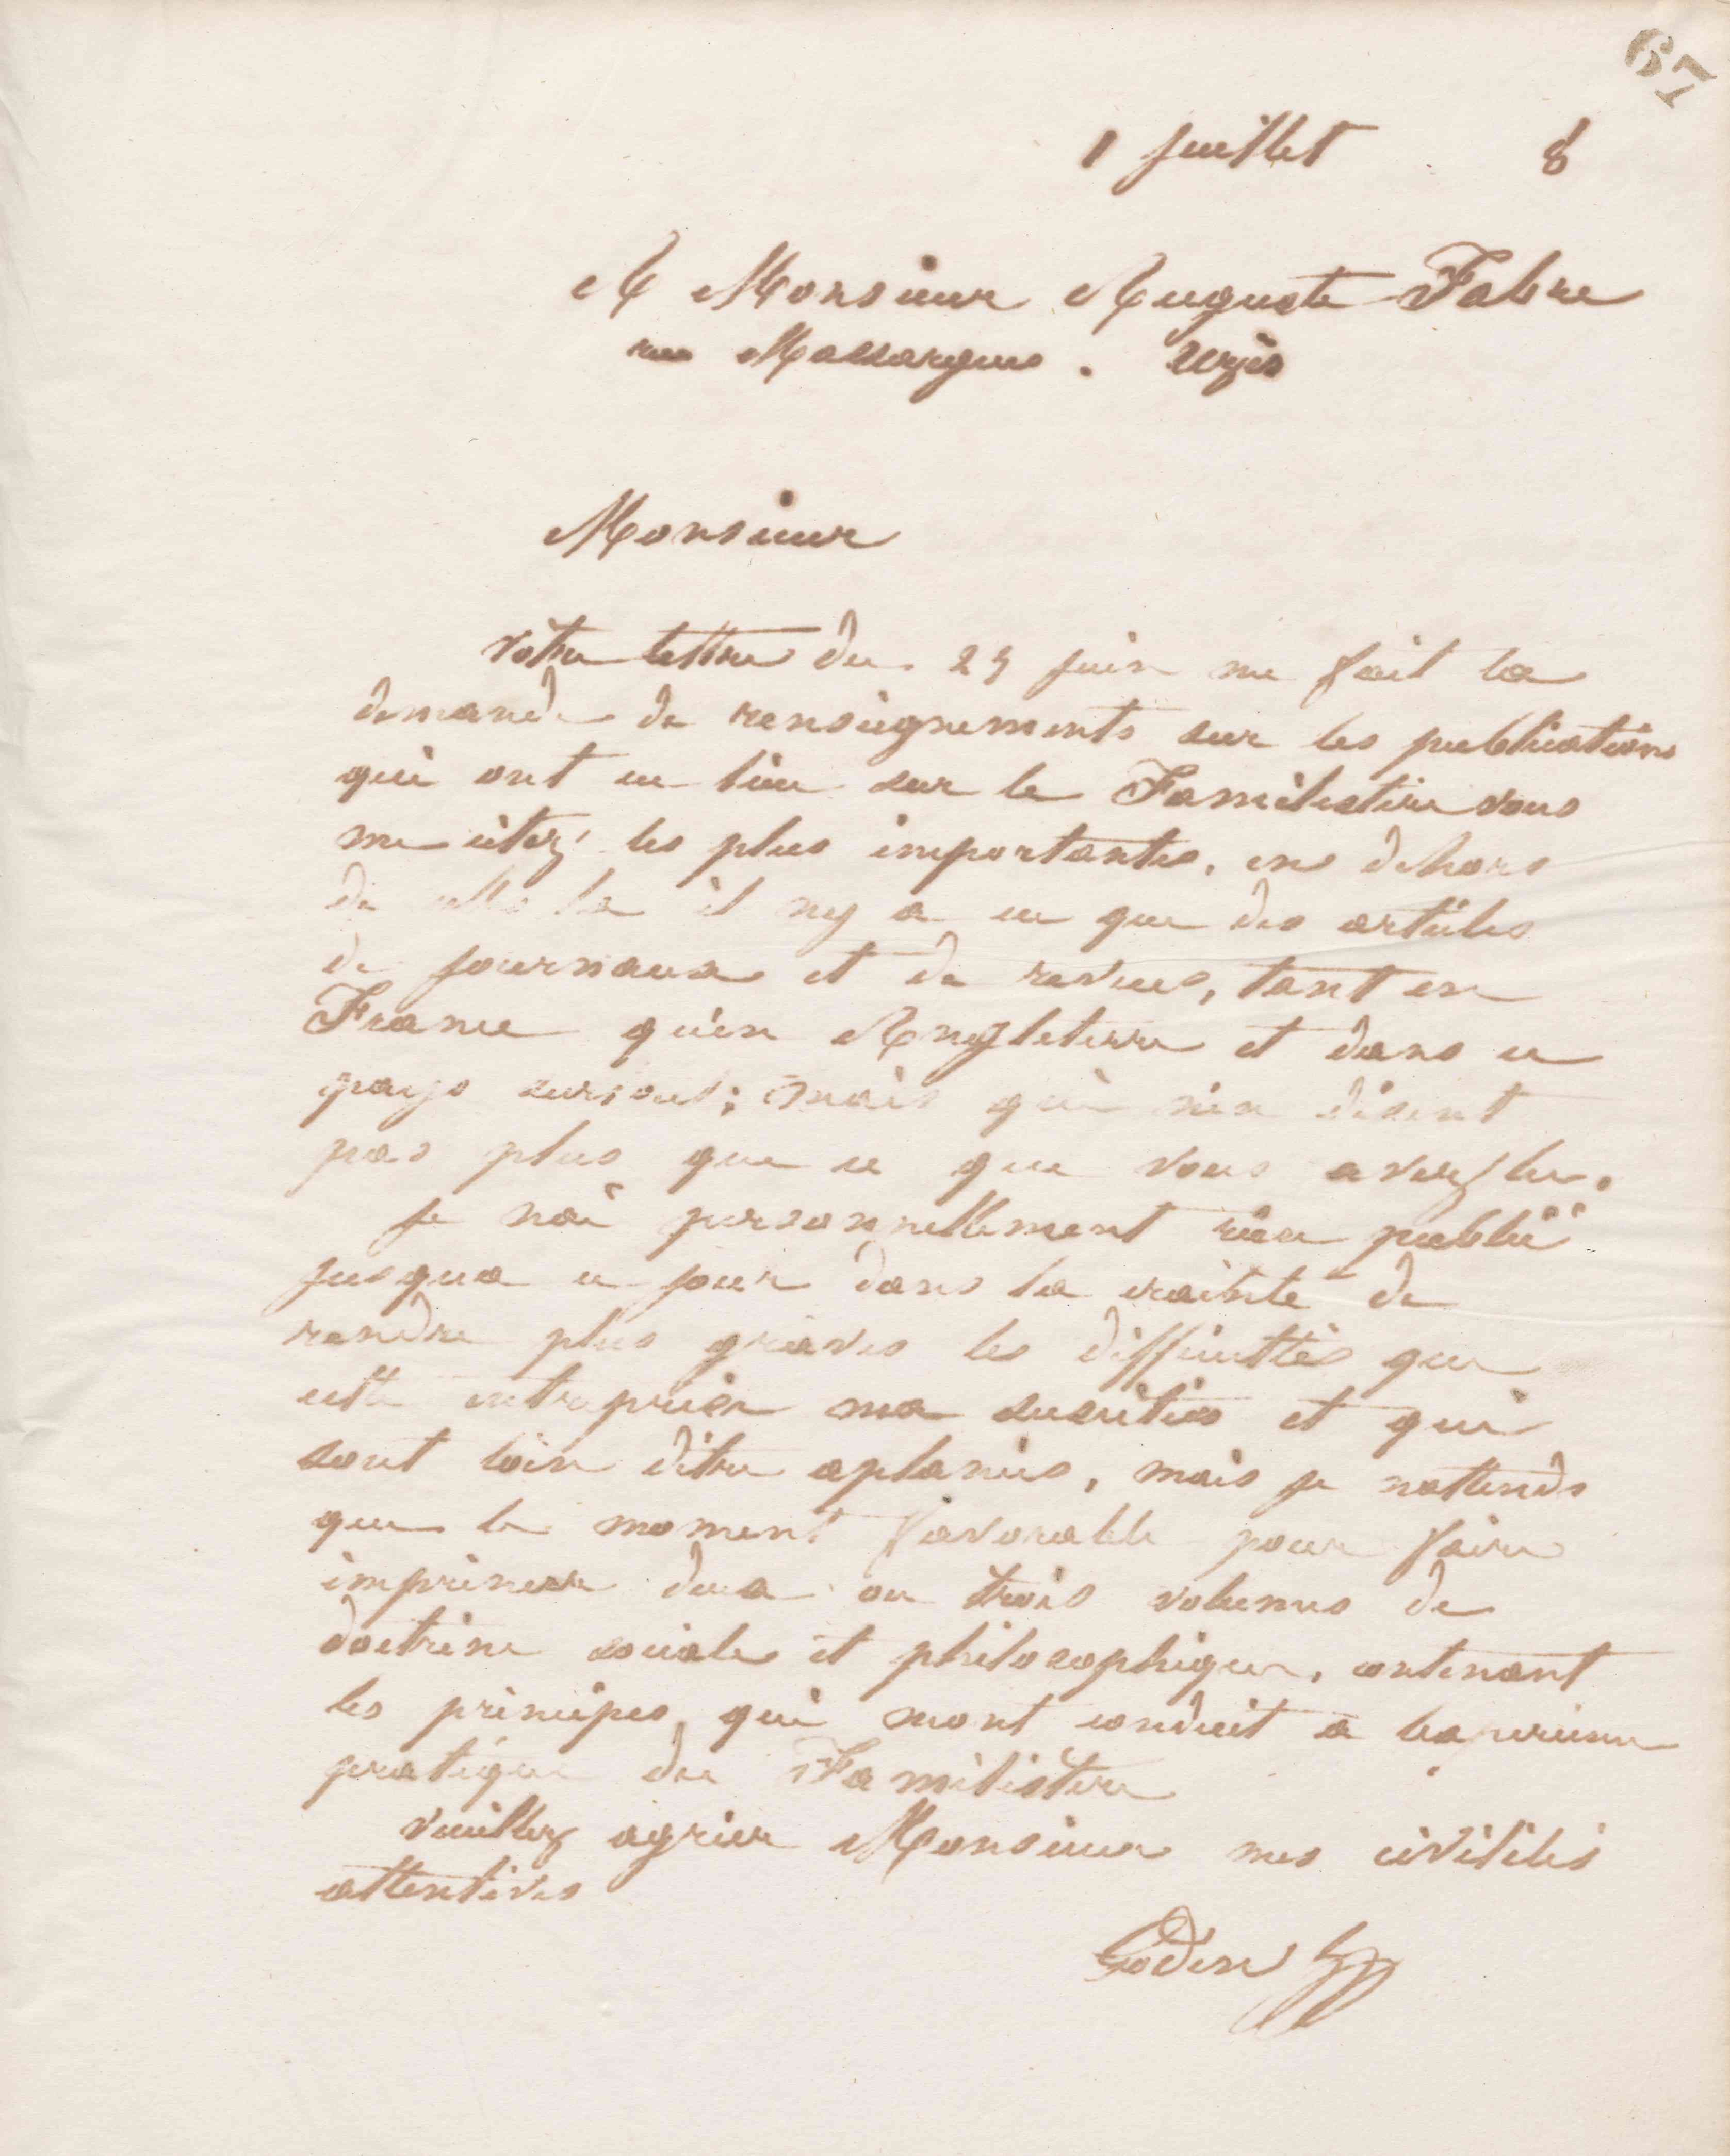 67
1 juillet 8
A Monsieur Auguste Fabre
rue Massargues. Uzès
Monsieur
Votre lettre du 29 juin me fait la
demande de renseignements sur les publications
qui ont eu lieu sur le Familistère vous
me citez les plus importantes, en dehors
de celle la il ny a eu que des articles
de journaux et de revues, tant en
France qu'en Angleterre et dans ce
pays surtout; mais qui n'en disent
pas plus que ce que vous avez lu.
je nai personnellement rien publié
jusqua ce jour dans la crainte de
rendre plus graves les difficultés que
cette entreprise ma suscitées et qui
sont loin d'être aplanies, mais je nattends
que le moment favorable pour faire
imprimer deux ou trois volumes de
doctrine sociale et philosophique, contenant
les principes qui mont conduit a
pratique du Familistère
Veuillez agréer Monsieur mes civilités
attentives
Godin